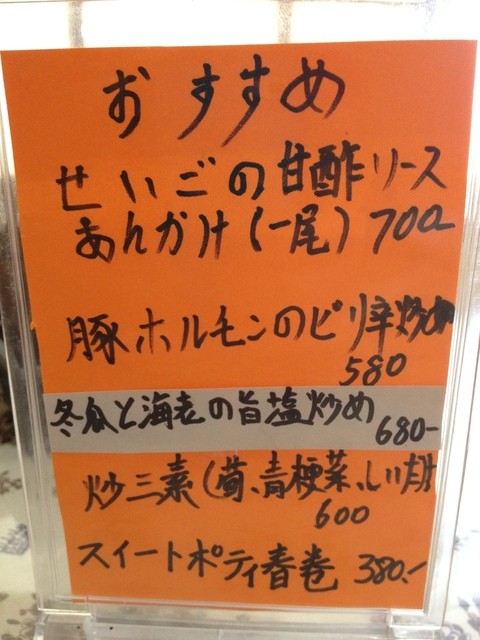 おすすめ
せいごの甘酢ソース
あんかけ(一尾) 700
豚ホルモンのピリ辛炒め
580
冬瓜と海老の旨塩炒め
680-
炒三素(筍、青梗菜、しい茸
600
スイートポティ春巻 380.-